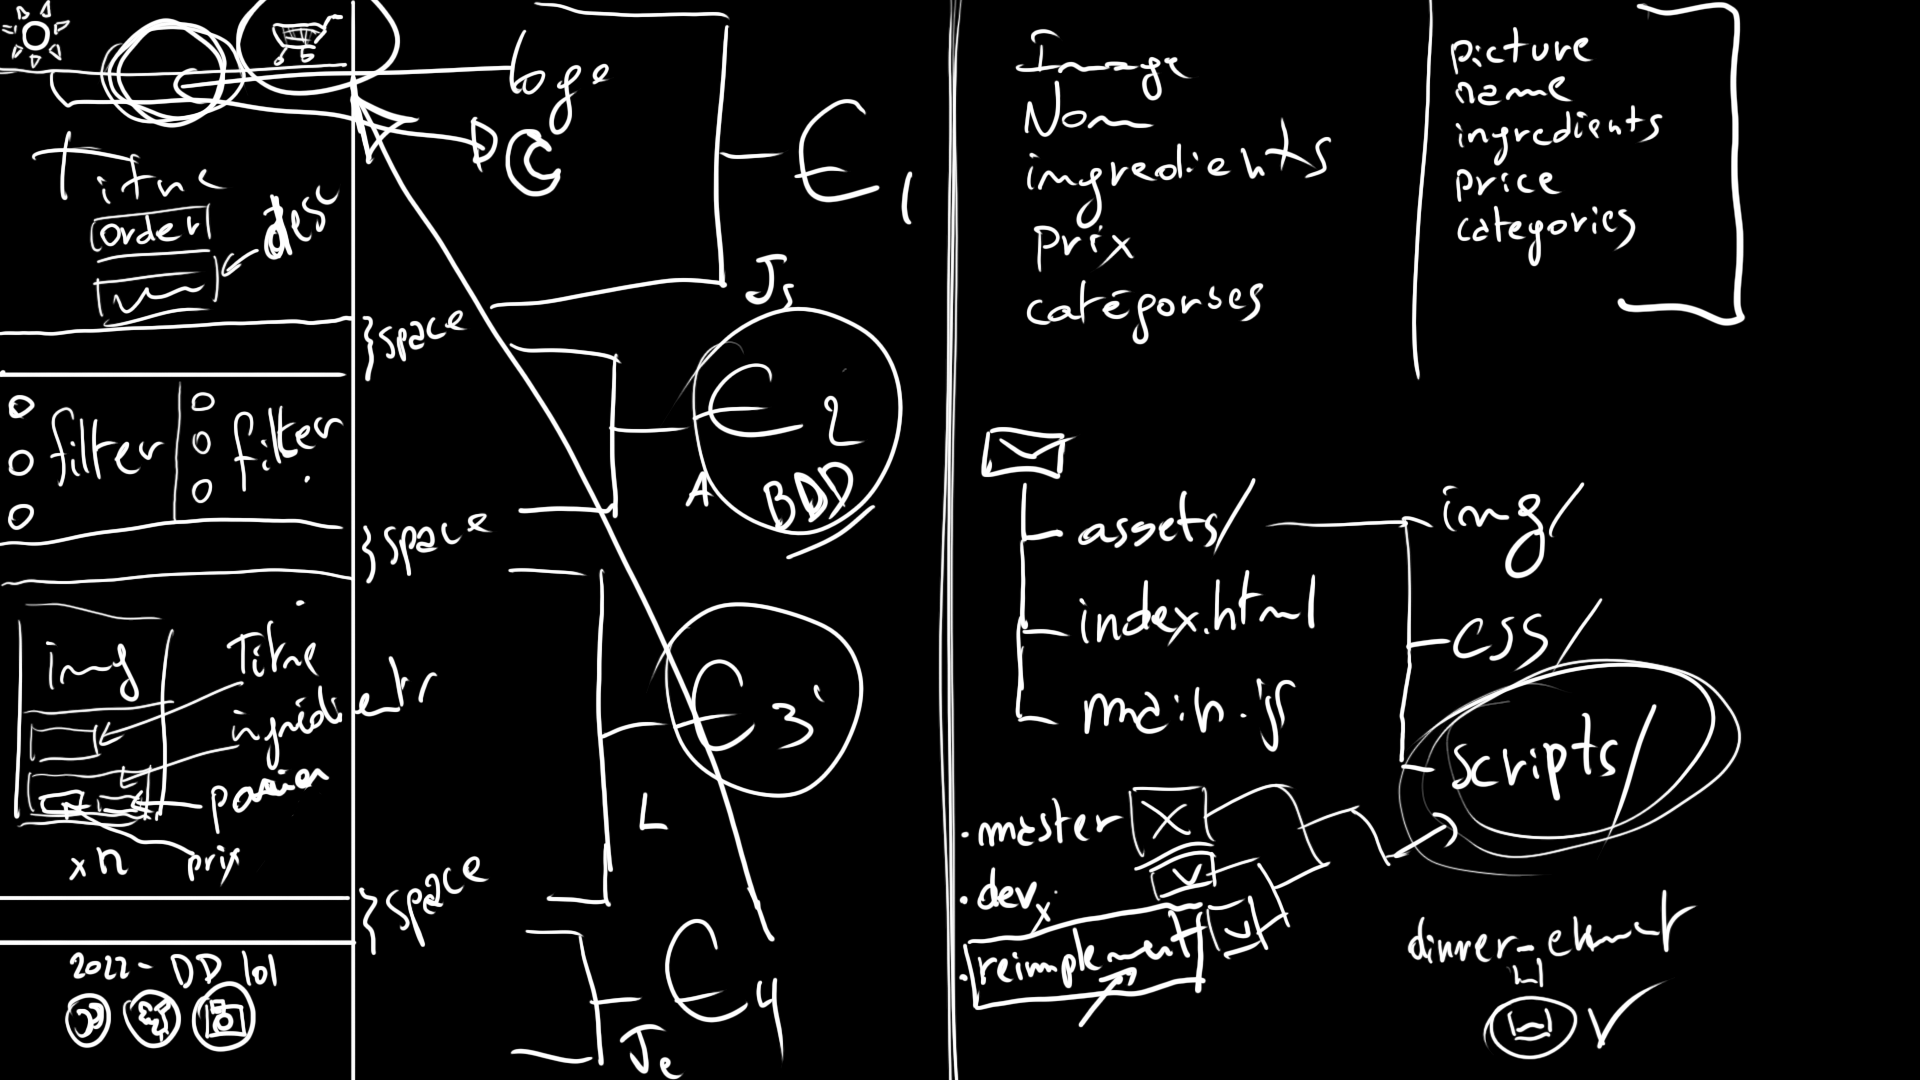 loge
C
Titne
order
desc
Js
E1
}space
filter
filter
E2
BDD
A
}space
img
Titne
ingrédients
panier
xn
prix
E3
L
}space
2022 - DD lol
E4
Je
Image
Nom
ingredients
Prix
catégories
picture
name
ingredients
price
categories
assets/
index.html
main.js
img/
css/
scripts/
.master
.devx
.reimplement
dinner-element